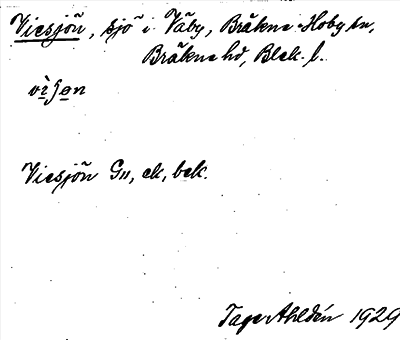 Viesjön, sjö i Väby, Bräkne-Hoby sn,
Bräkne hd, Blek. l.
Viesjön G11, ek, bek.
Tage Ahldén 1929